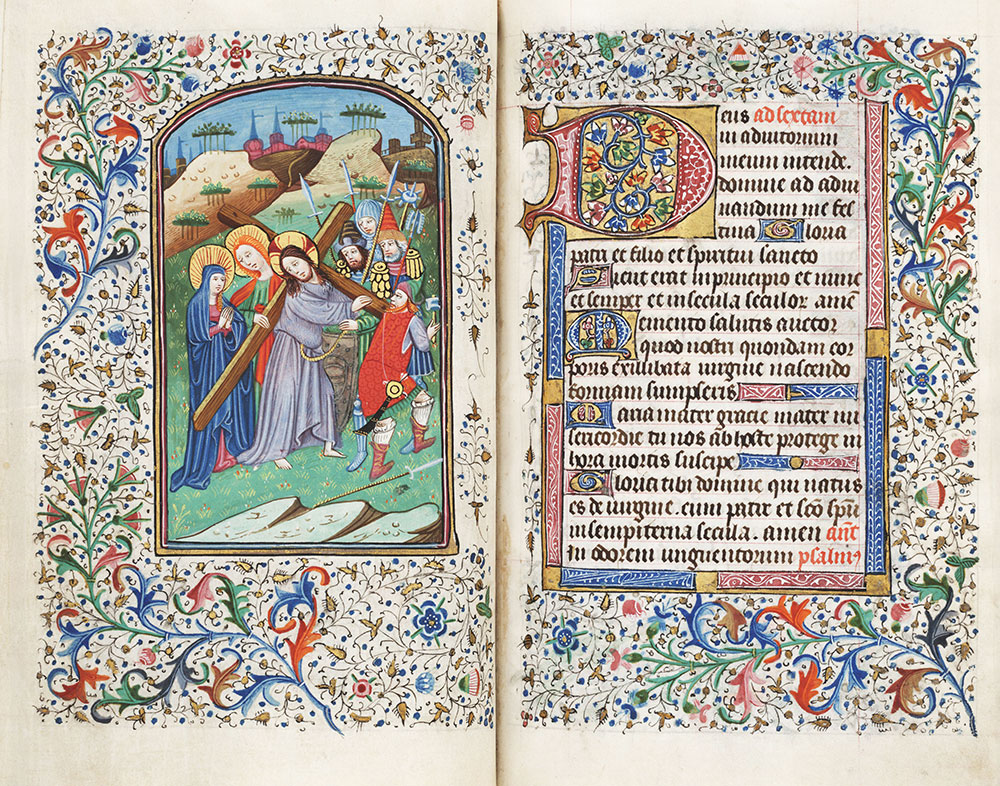 Deus ad sextam
in adiutorium
meum intend.
domine ad adiu
uandum me fes
tina Gloria
patri et filio et spiritui sancto
Sicut erat in principio et nunc
et semper et in secula seculor amen
Memento salutis auctor
quod nostri quondam cor
poris ex illibata uirgine nascendo
formam sumpseris
Maria mater gracie mater mi
sericordie tu nos ab hoste protege in
hora mortis suscipe
Gloria tibi domine qui natus
es de uirgine. cum patre et sc̄o spū
in sempiterna secula. amen an̄t
In odorem unguentorum psalmꝰ